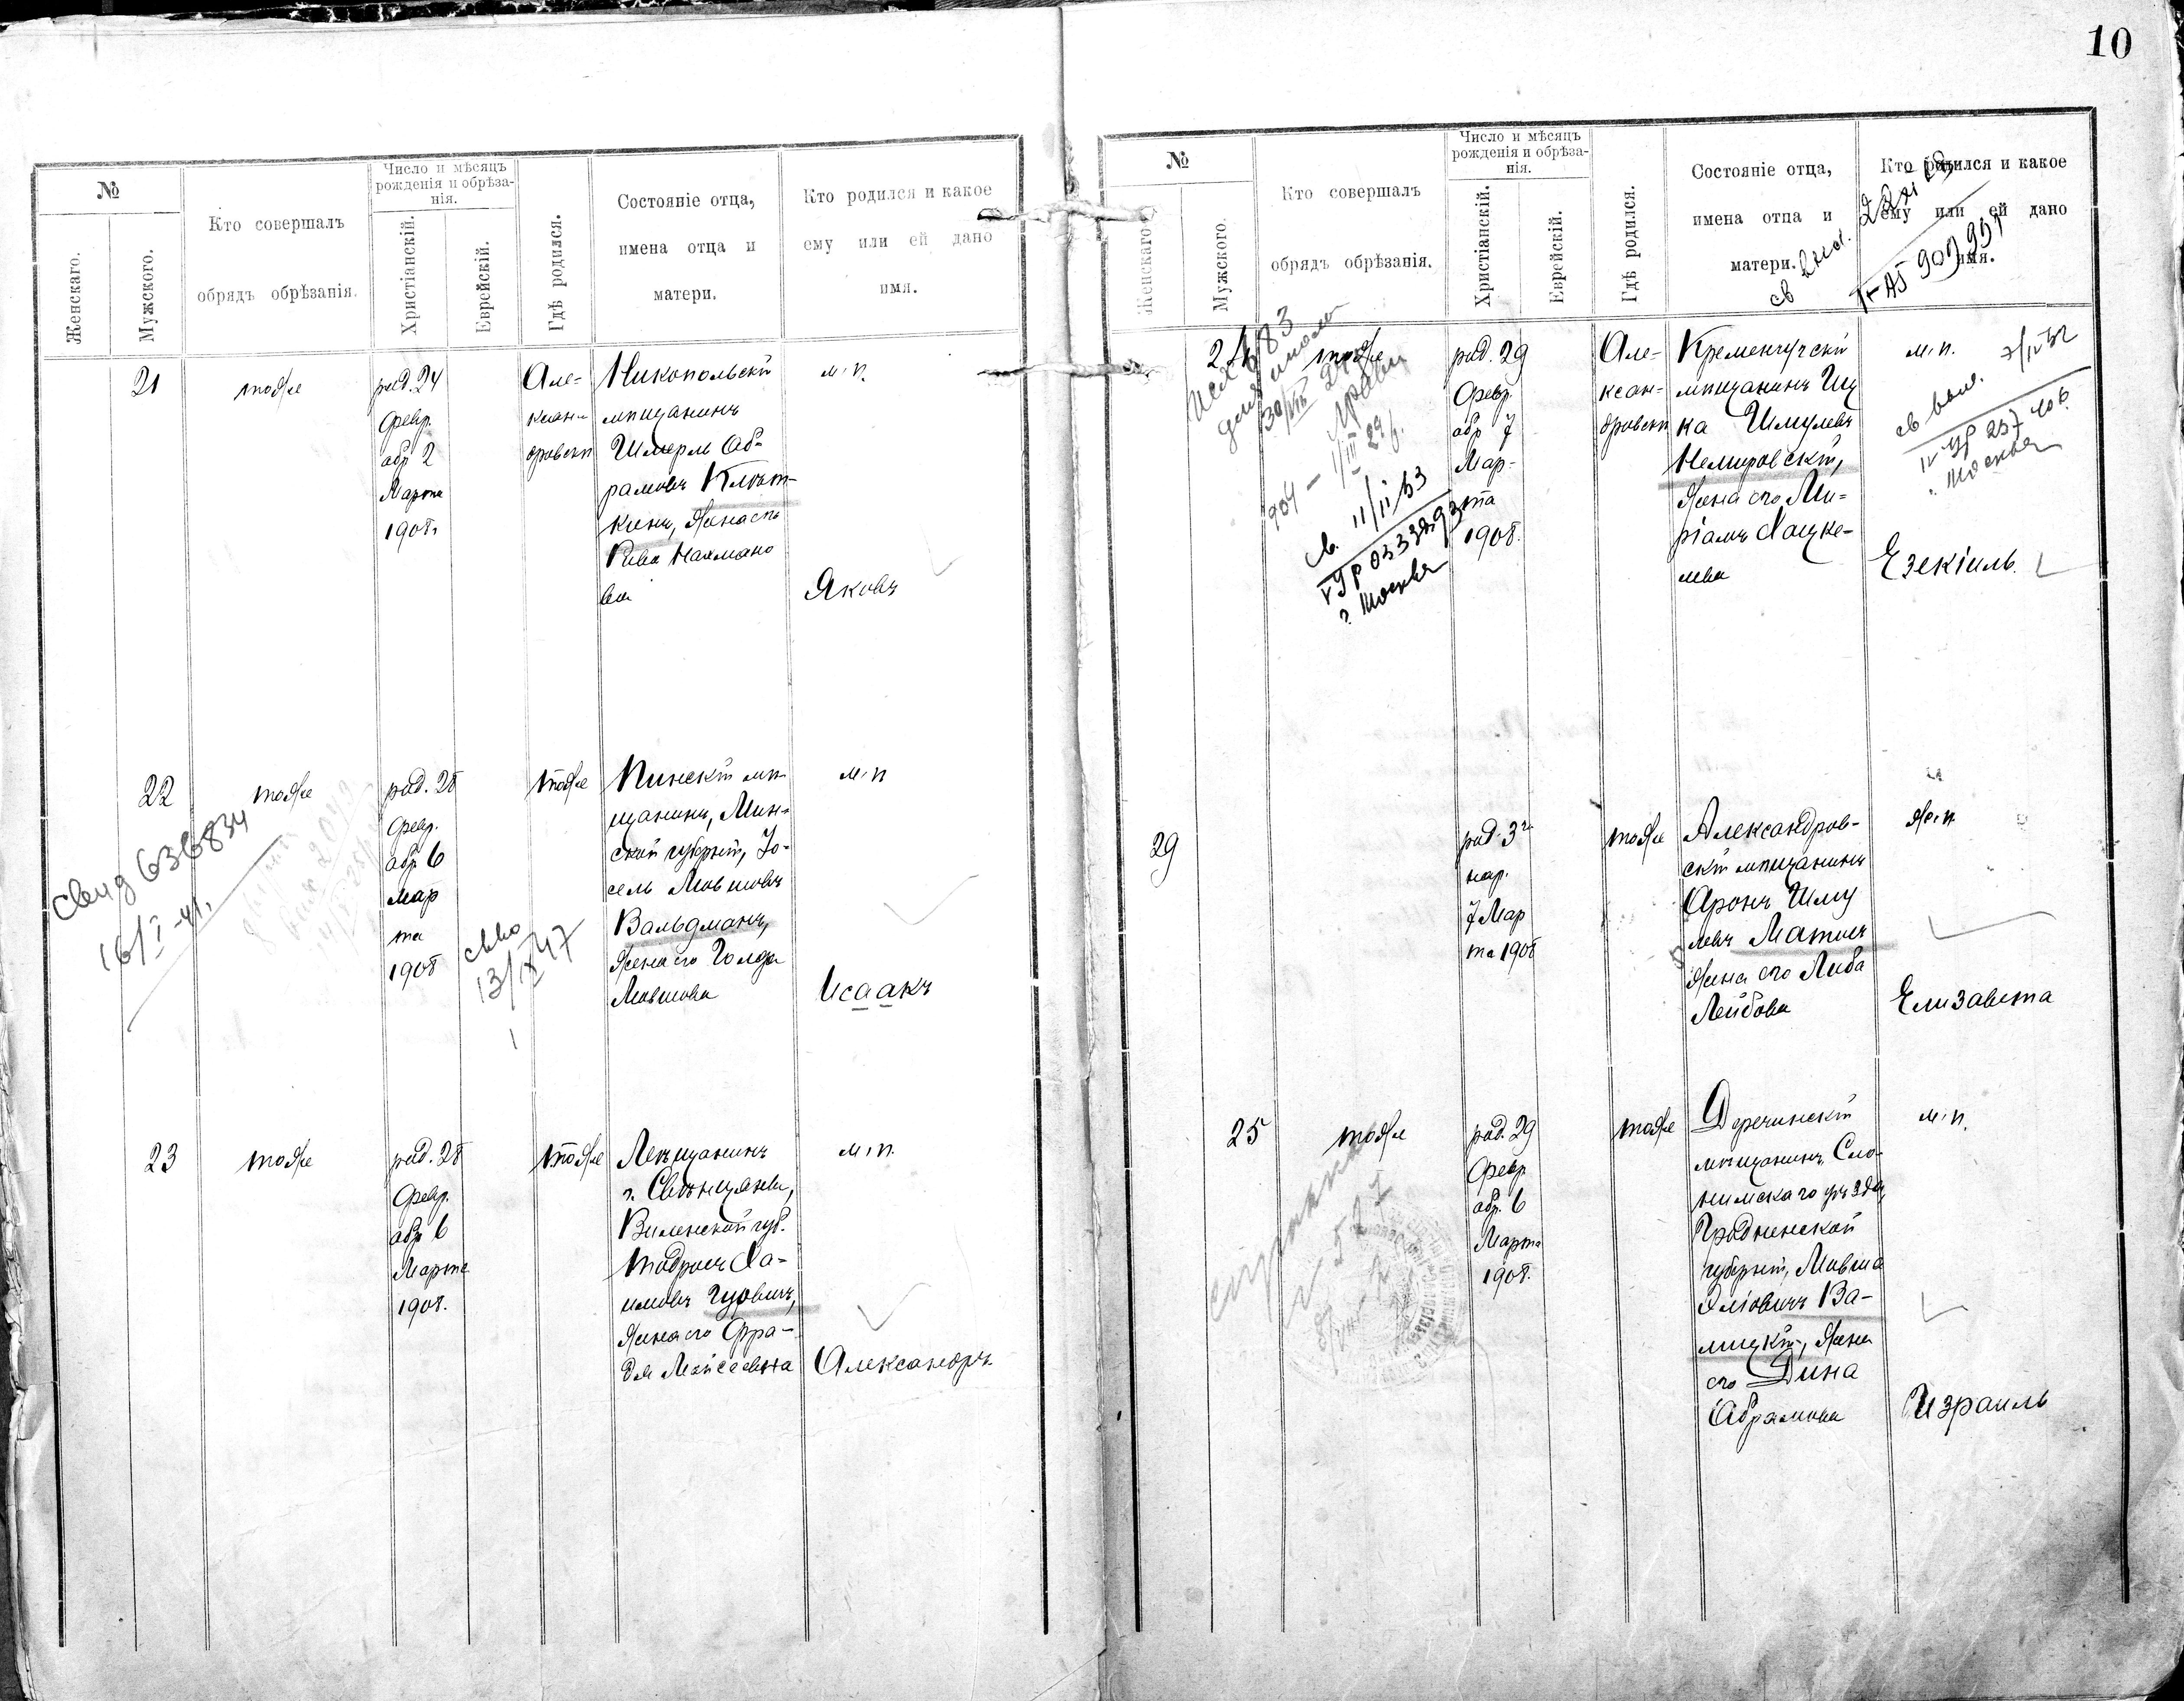 10
№
Женскаго.
Мужского.
Кто совершалъ
обрядъ обрѣзанія.
Число и мѣсяцъ
рожденія и обрѣза-
нія.
Христіанскій.
Еврейскій.
Гдѣ родился.
Состояніе отца,
имена отца и
матери.
Кто родился и какое
ему или ей дано
имя.
21
тоже
род. 24
Февр.
обр 2
Марта
1908.
Але-
ксан-
дровскъ
Никопольскій
мѣщанинъ
Шмерль Аб-
рамовъ
кинъ, Жена его
Рива Нахмано
ва
м. п.
Яковъ
22
тоже
род. 28
Февр.
обр 6
Мар
та
1908
тоже
Пинскій мѣ-
щанинъ, Мин-
ской губерніи, Іо-
сель Мовшовъ
Вальдманъ,
Жена его Голда
Мовшова
м. п
Исаакъ
свид 636834
16/I-41.
13/IX 47
23
тоже
род. 28
Февр.
обр 6
Марта
1908.
тоже
г. Свѣнцяны,
Виленской губ.
Тодросъ Ха-
имовъ Гуровичъ,
Жена его Фра-
дя Мойсеевна
м. п.
Александръ
№
Женскаго.
Мужского.
Кто совершалъ
обрядъ обрѣзанія.
Число и мѣсяцъ
рожденія и обрѣза-
нія.
Христіанскій.
Еврейскій.
Гдѣ родился.
Состояніе отца,
имена отца и
матери.
Кто родился и какое
ему или ей дано
имя.
24
тоже
род. 29
Февр.
обр 7
Мар-
та
1908.
Але-
ксан-
дровскъ
Кременчугскій
мѣщанинъ Иц
ка Шмулевъ
Немировскій,
Жена его Ми-
ріамъ Хацке-
лева
м. п.
Езекіиль.
св. 11/II 53
г. Москва
г. Москва
29
род. 3го
нар.
7 Мар
та 1908
тоже
Александров-
скій мѣщанинъ
Аронъ Шму
левъ Матисъ
Жена его Либа
Лейбова
ж. п.
Елизавета
25
тоже
род. 29
Февр
обр. 6
Марта
1908.
тоже
Деречинскій
мѣщанинъ, Сло-
нимскаго уѣзда,
Гродненской
губерніи, Мовша
Эліовичъ Ва-
лицкій, Жена
его Дина
Абрамова
м. п.
Израиль